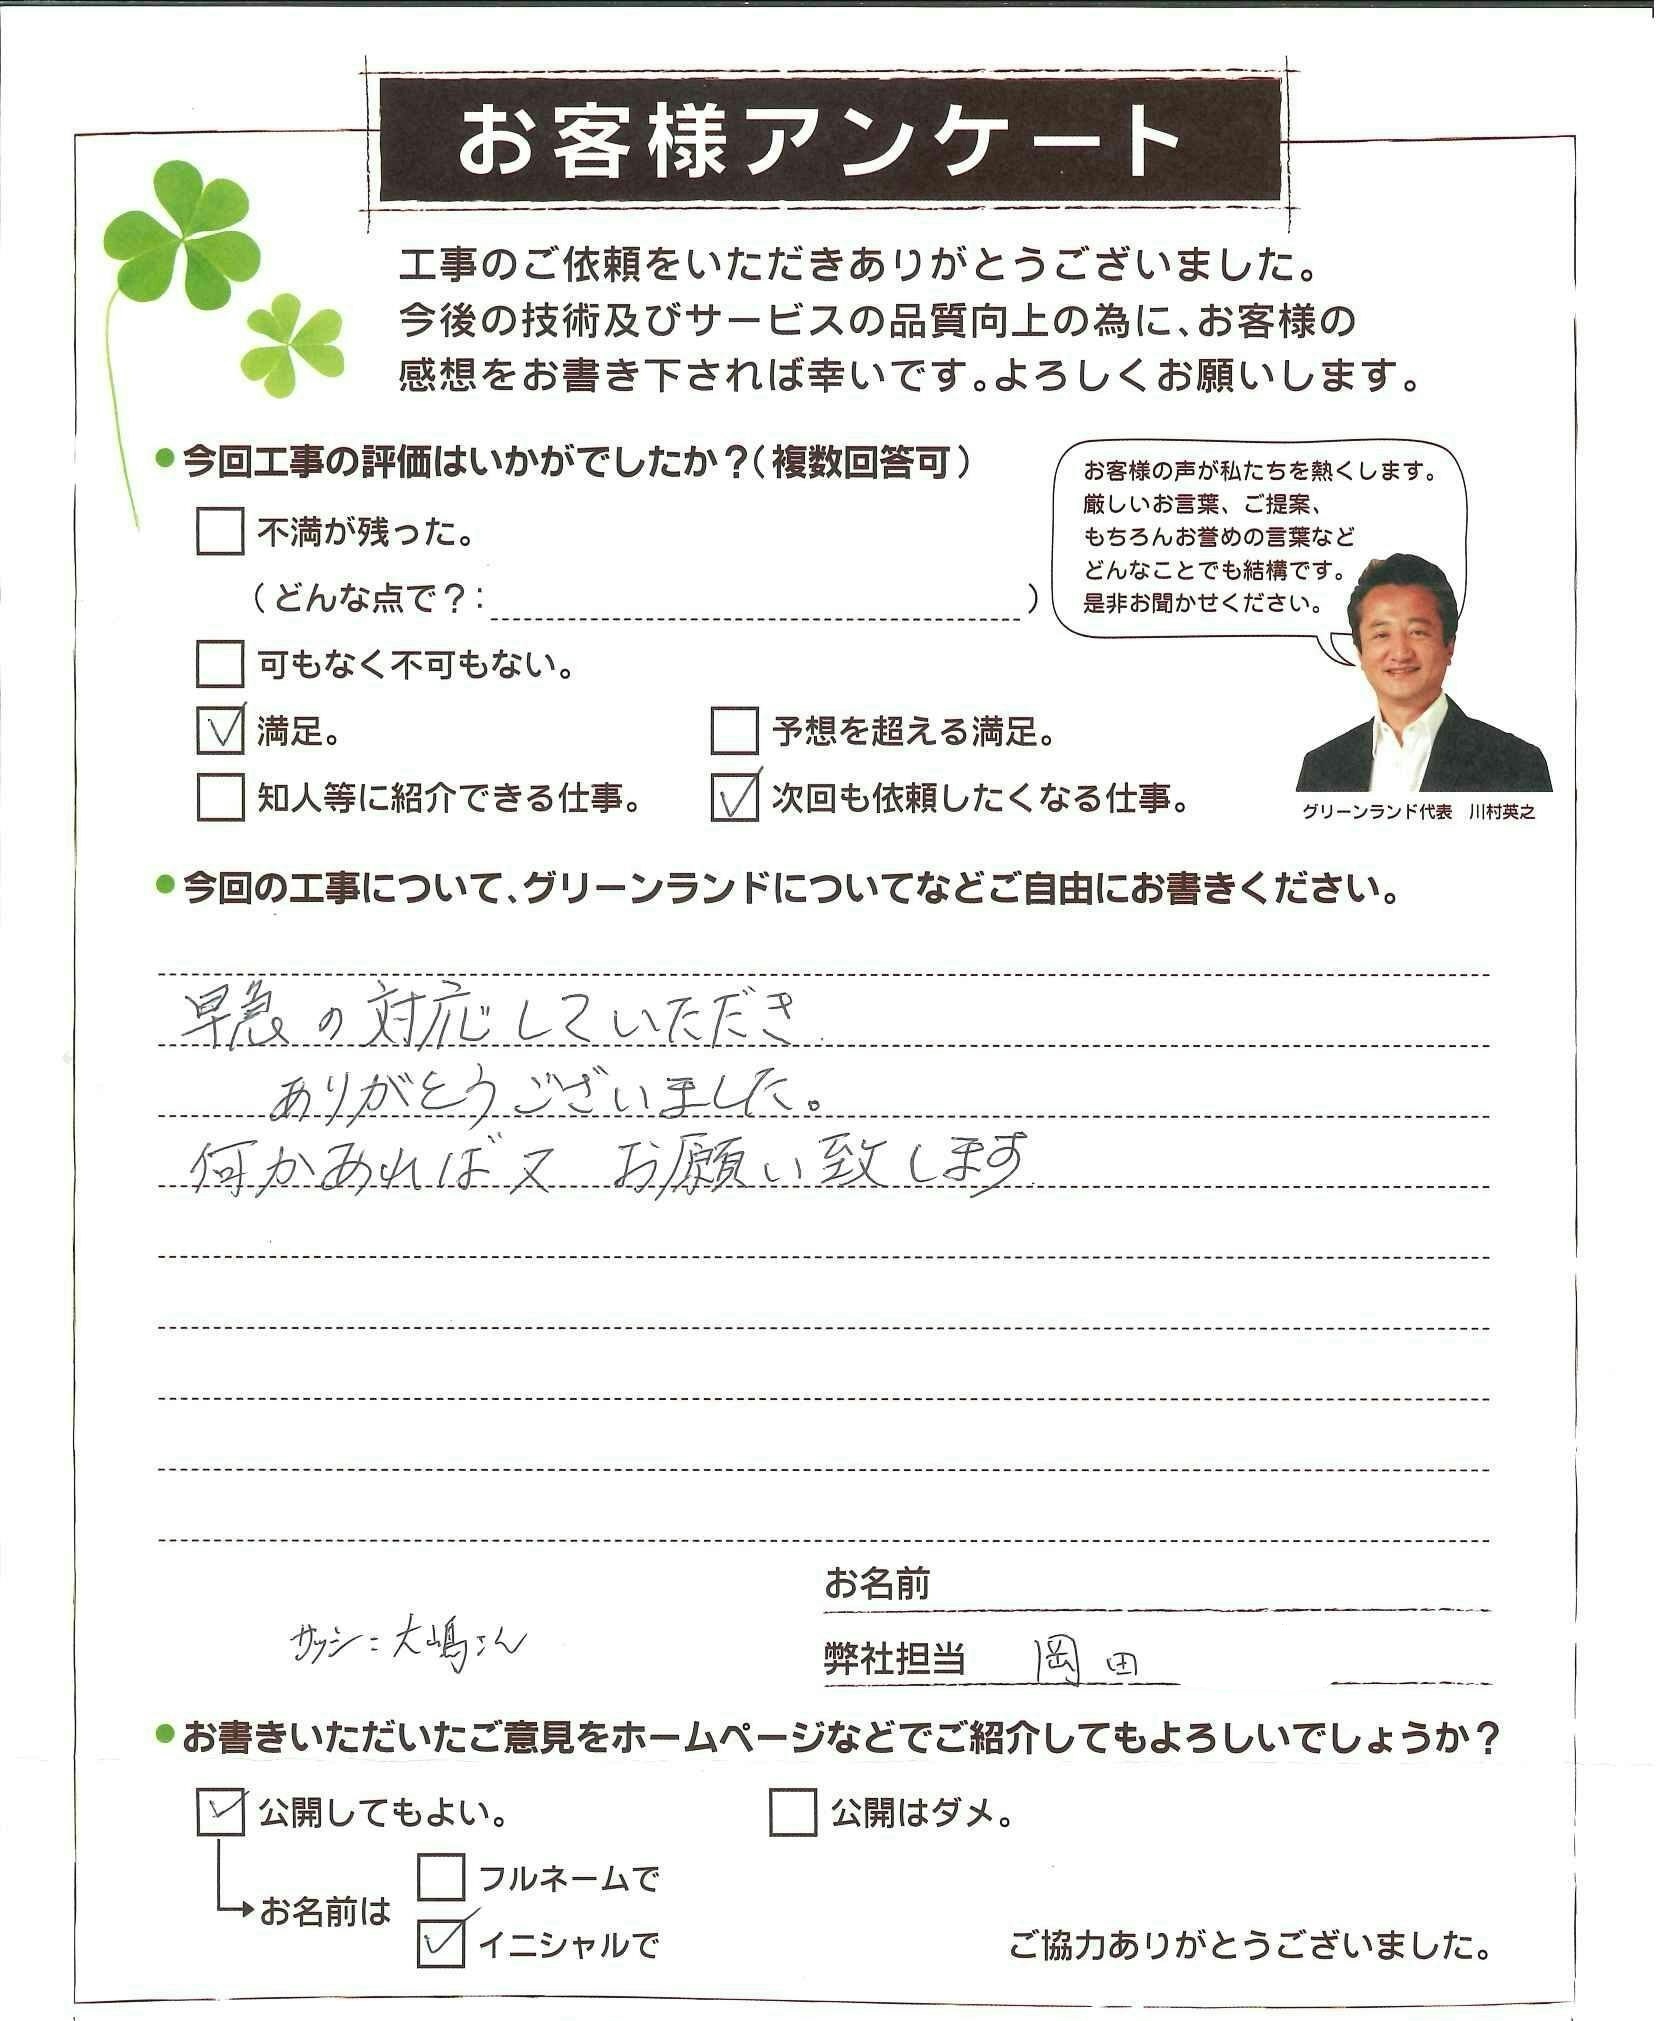 お客様アンケート
工事のご依頼をいただきありがとうございました。
今後の技術及びサービスの品質向上の為に、お客様の
感想をお書き下されば幸いです。よろしくお願いします。
●今回工事の評価はいかがでしたか？（複数回答可）
不満が残った。
（どんな点で？：　）
可もなく不可もない。
満足。
予想を超える満足。
知人等に紹介できる仕事。
次回も依頼したくなる仕事。
お客様の声が私たちを熱くします。
厳しいお言葉、ご提案、
もちろんお誉めの言葉など
どんなことでも結構です。
是非お聞かせください。
グリーンランド代表　川村英之
●今回の工事について、グリーンランドについてなどご自由にお書きください。
早急の対応していただき
ありがとうございました。
何かあれば又 お願い致します
お名前
サッシ：大嶋さん
弊社担当　岡田
●お書きいただいたご意見をホームページなどでご紹介してもよろしいでしょうか？
公開してもよい。
公開はダメ。
お名前は
フルネームで
イニシャルで
ご協力ありがとうございました。